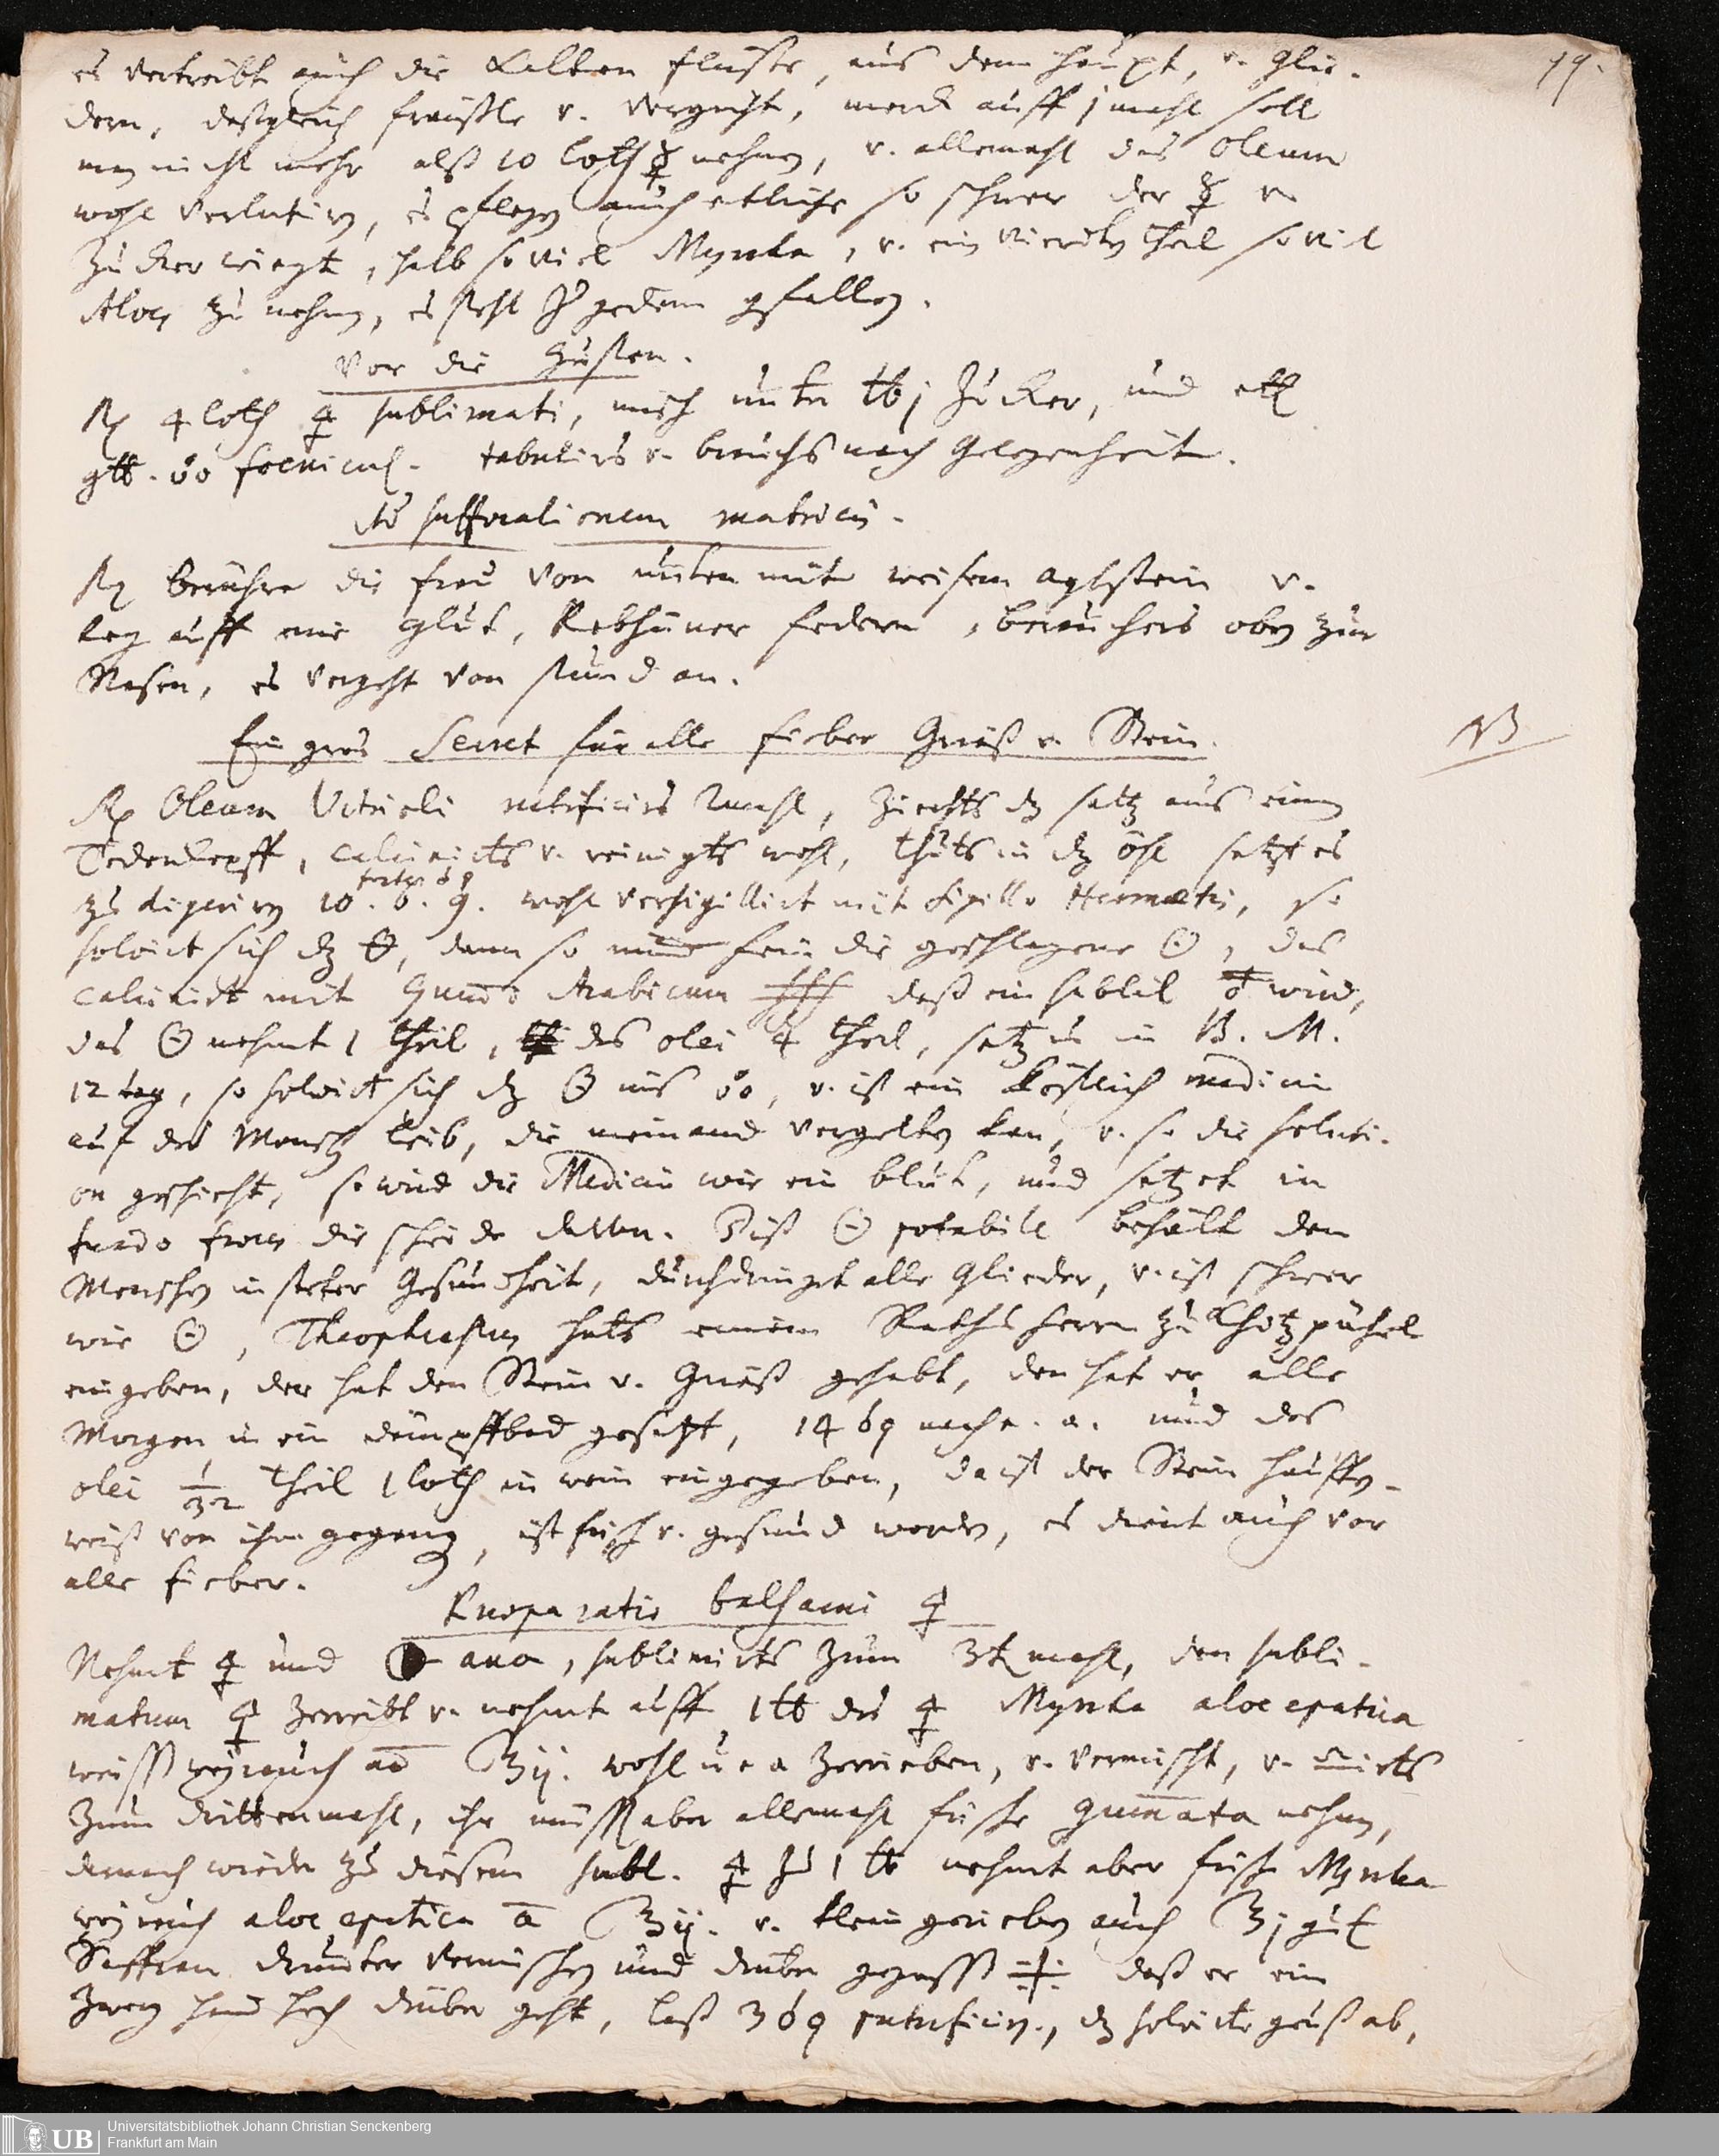 19.
es vertreibt auch die kalten flüsse, aus dem haupt, v. glie-
dern, desgleich v. vergicht, merck auff j mahl soll
man nicht mehr alß 10 loth ☿ nehmen, v. allemahl das Oleum
wohl verlutirn, es pflegen auch etliche so schwer der ☿ v.
Zucker wiegt, halb so viel Myrrha, v. ein vierten theil so viel
Aloes zu nehmen, es steht jedem gefallen.
Vor die Husten.
Rx 4 loth 🜍 sublimati, misch unter ℔ j Zucker, und etl
gtt. foenicul. tabulirs v. brauchs nach gelegenheit.
Ad suffocationem matricis.
Rx berühre die frau von unten mit weisem agtstein v.
leg auff eine glut, Rebhüner federn, beräuchers oben zur
Nasen, es vergeht von stund an.
Ein gros Secret für alle fieber Grieß v. Stein.
NB
Rx Oleum Vitrioli rectificirs 2mahl, ziechts dz saltz aus einem
Todenkopff, calcinirts v. reinigts wohl, thuts in dz öhl setzt es
zu digerirn 10. 6. 9. wohl versigillirt mit sigillo Hermetis, so
solvirt sich dz 🜔, dann so fein die geschlagene ☉, das
calcinirt mit Gummi Arabicum daß ein subtil wird,
das ☉ nehmt 1 theil, des olei 4 theil, setz es in B. M.
12 tag, so solvirt sich dz ☉ ins, v. ist ein köstlich medicin
auf des Mensch leib, die niemand vergelten kan, v. so die soluti-
on geschicht, so wird die Medicin wie ein blut, und setzet in
fundo die scheide. Diß ☉ potabile behält den
Menschen in steter Gesundheit, durchdringet alle Glieder, v. ist schwer
wie ☉, Theophrastus hats einem Rathsherrn zu
eingeben, der hat den Stein v. Grieß gehabt, den hat er alle
Morgen in ein dampffbad gesetzt, 14 tag nach e. a. und des
olei 1/32 theil 1 loth in wein eingegeben, da ist der Stein hauffen-
weiß von ihm gegang, ist frisch v. gesund worden, es dient auch vor
alle fieber.
Praeparatio balsami 🜍
Nehmt 🜍 und ana, sublimirts zum 3t mahl, den subli-
matum 🜍 zerreibt v. nehmt auff 1 ℔ des 🜍 Myrrha aloe epatica
weiss weyrauch aa ℥ij. wohl zerrieben, v. vermischt, v.
zum drittenmahl, ihr müsst aber allemahl frische gummata nehmen,
darnach wieder zu diesem subl. 🜍 zu 1 ℔ nehmt aber frisch Myrrha
weyrauch aloe epatica a ℥ij. v. klein gerieben auch ℥j gut
Saffran drunter vermischen und drüber gegossen daß er ein
zwerg hand hoch drüber geht, laß 3 putrificirn, dz solvirte geuß ab,
UB
Universitätsbibliothek Johann Christian Senckenberg
Frankfurt am Main